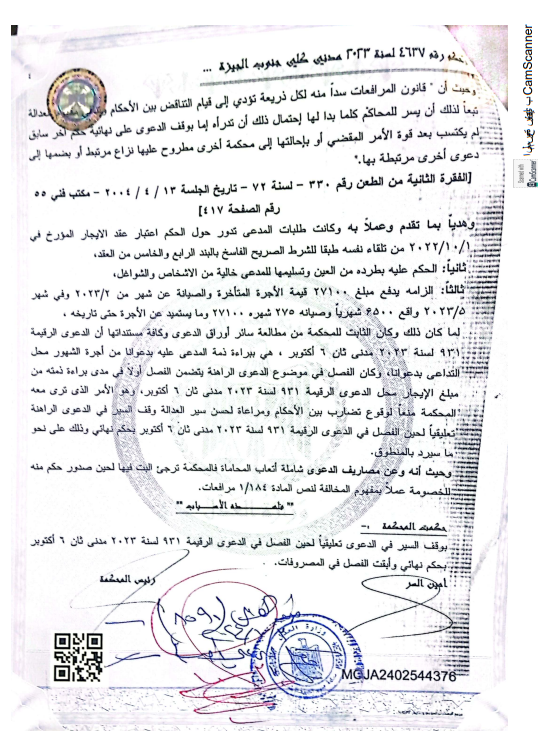 حكم رقم ٤٦٣٧ لسنة ٢٠٢٣ مدني كلي جنوب الجيزة ...
٤
وحيث أن " قانون المرافعات سداً منه لكل ذريعة تؤدي إلى قيام التناقض بين الأحكام العدالة
تبعاً لذلك أن يسر للمحاكم كلما بدا لها إحتمال ذلك أن تدرأه إما بوقف الدعوى على نهائية حكم آخر سابق
لم يكتسب بعد قوة الأمر المقضي أو بإحالتها إلى محكمة أخرى مطروح عليها نزاع مرتبط أو بضمها إلى
دعوى أخرى مرتبطة بها."
[الفقرة الثانية من الطعن رقم ٣٣٠ - لسنة ٧٢ - تاريخ الجلسة ١٣ / ٤ / ٢٠٠٤ - مكتب فني ٥٥
رقم الصفحة ٤١٧]
وهدياً بما تقدم وعملاً به وكانت طلبات المدعى تدور حول الحكم اعتبار عقد الايجار المؤرخ في
٢٠٢٢/١٠/١ من تلقاء نفسه طبقا للشرط الصريح الفاسخ بالبند الرابع والخامس من العقد،
ثانياً: الحكم عليه بطرده من العين وتسليمها للمدعى خالية من الاشخاص والشواغل،
ثالثاً: الزامه بدفع مبلغ ٢٧١٠٠ قيمة الأجرة المتأخرة والصيانة عن شهر من ٢٠٢٣/٢ وفي شهر
٢٠٢٣/٥ واقع ٦٥٠٠ شهرياً وصيانه ٢٧٥ شهره ٢٧١٠٠ وما يستميد عن الأجرة حتى تاريخه ،
لما كان ذلك وكان الثابت للمحكمة من مطالعة سائر أوراق الدعوى وكافة مستنداتها أن الدعوى الرقيمة
٩٣١ لسنة ٢٠٢٣ مدنى ثان ٦ أكتوبر ، هي ببراءة ذمة المدعى عليه بدعوانا من أجرة الشهور محل
التداعى بدعوانا، وكان الفصل في موضوع الدعوى الراهنة يتضمن الفصل أولاً في مدى براءة ذمته من
مبلغ الإيجار محل الدعوى الرقيمة ٩٣١ لسنة ٢٠٢٣ مدنى ثان ٦ أكتوبر، وهو الأمر الذى ترى معه
المحكمة منعاً لوقوع تضارب بين الأحكام ومراعاة لحسن سير العدالة وقف السير في الدعوى الراهنة
تعليقياً لحين الفصل في الدعوى الرقيمة ٩٣١ لسنة ٢٠٢٣ مدنى ثان ٦ أكتوبر بحكم نهائي وذلك على نحو
ما سيرد بالمنطوق.
وحيث أنه وعن مصاريف الدعوى شاملة أتعاب المحاماة فالمحكمة ترجئ البت فيها لحين صدور حكم منه
للخصومة عملاً بمفهوم المخالفة لنص المادة ١/١٨٤ مرافعات.
" فلهــذه الأسبــاب "
حكمت المحكمة :-
بوقف السير في الدعوى تعليقياً لحين الفصل في الدعوى الرقيمة ٩٣١ لسنة ٢٠٢٣ مدنى ثان ٦ أكتوبر
بحكم نهائي وأبقت الفصل في المصروفات.
أمين السر
رئيس المحكمة
MOJA2402544376
CamScanner
Scanned with
CamScanner